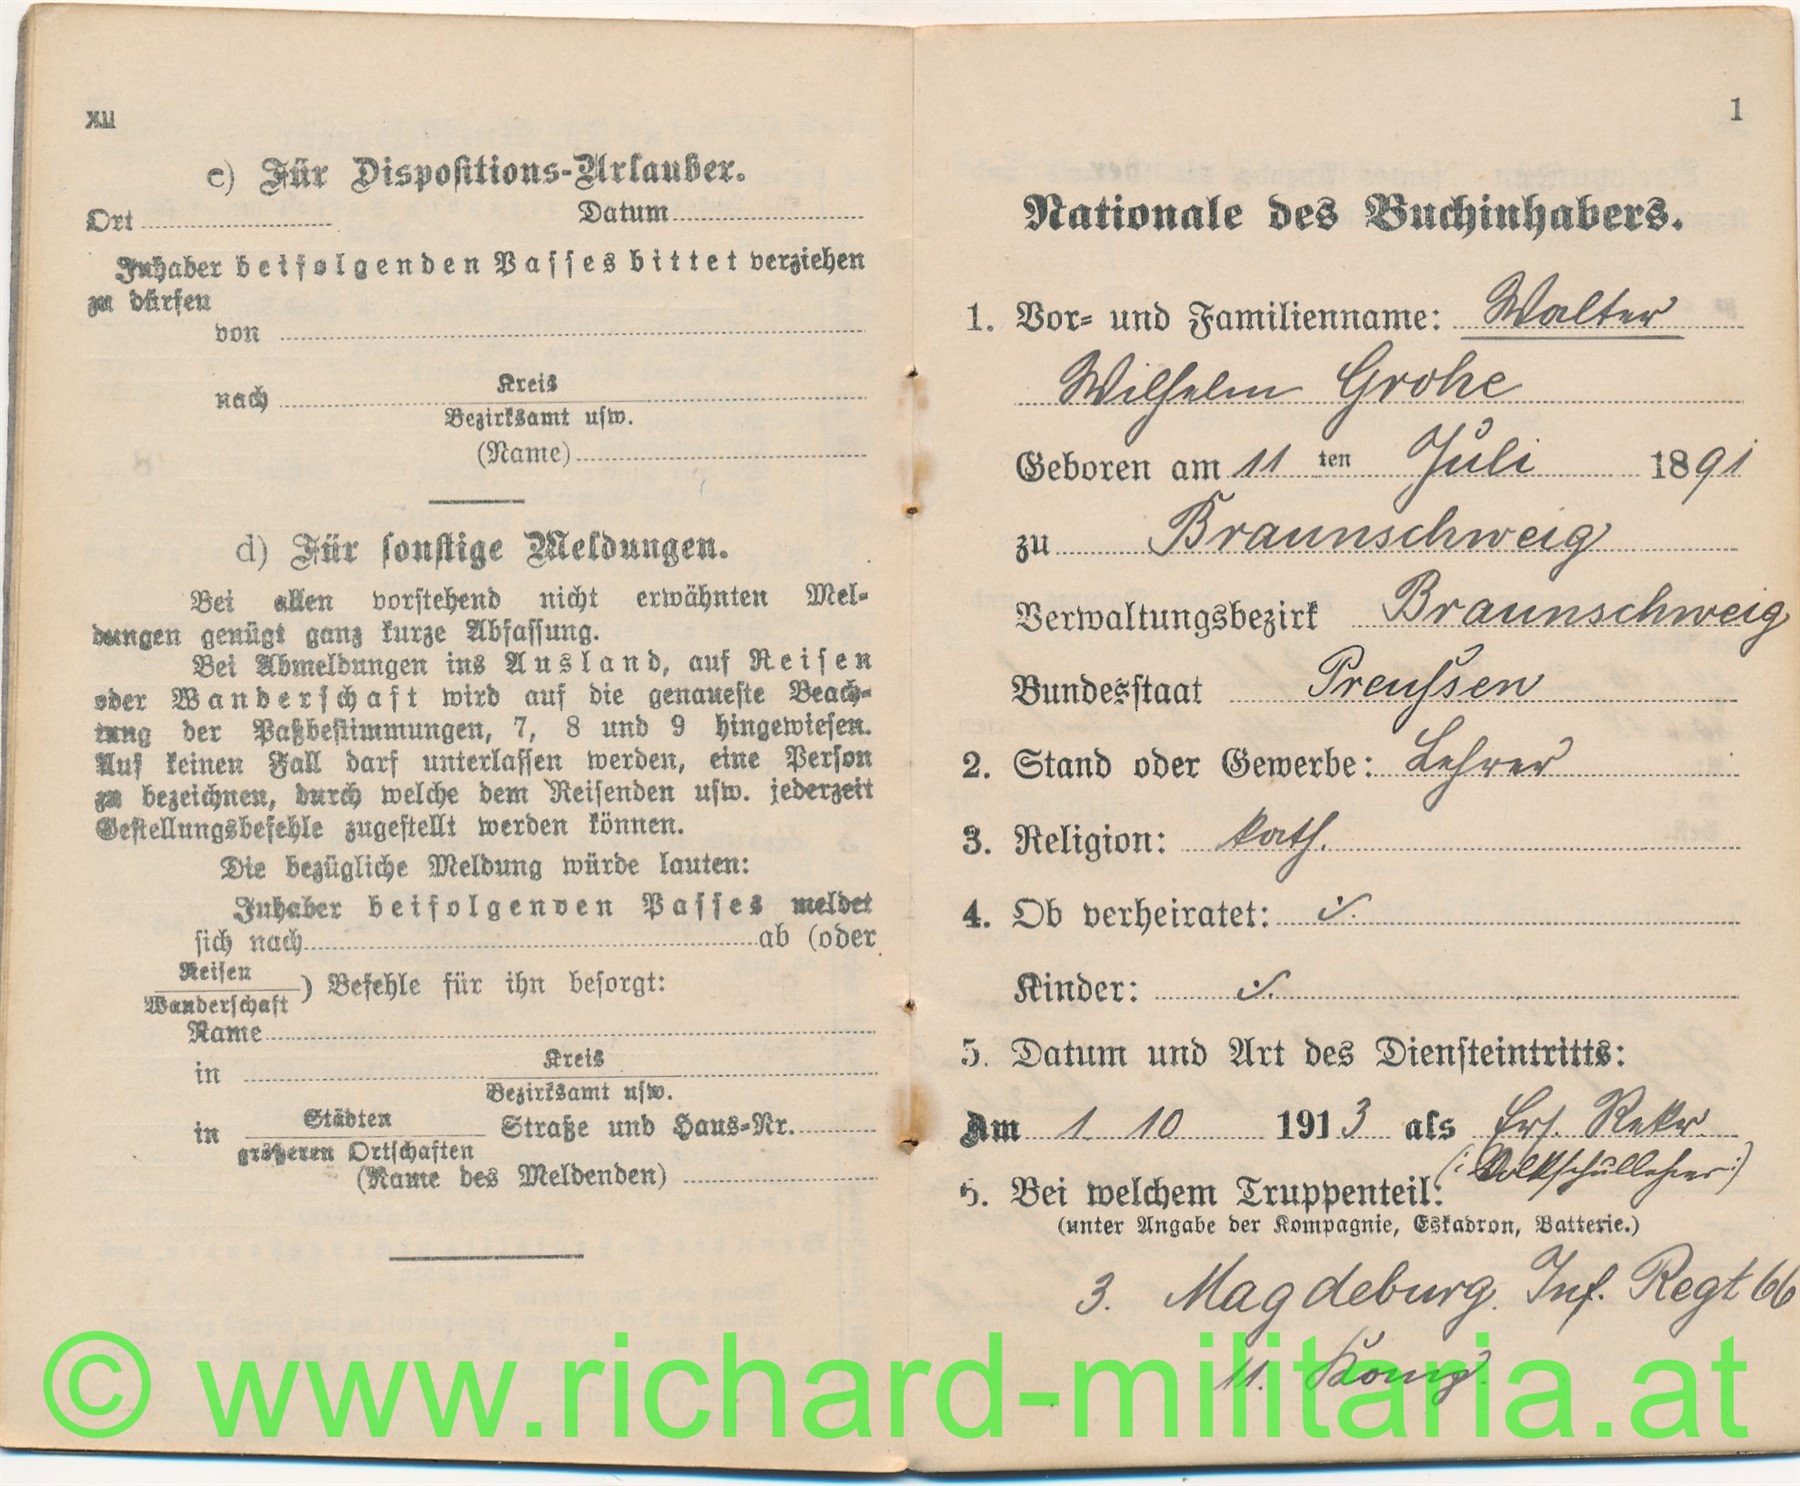 XII
c) Für Dispositions-Urlauber.
Ort Datum
Inhaber beifolgenden Passes bittet verziehen
zu dürfen
von
nach Kreis
Bezirksamt usw.
(Name)
d) Für sonstige Meldungen.
Bei allen vorstehend nicht erwähnten Mel-
dungen genügt ganz kurze Abfassung.
Bei Abmeldungen ins Ausland, auf Reisen
oder Wanderschaft wird auf die genaueste Beach-
tung der Paßbestimmungen, 7, 8 und 9 hingewiesen.
Auf keinen Fall darf unterlassen werden, eine Person
zu bezeichnen, durch welche dem Reisenden usw. jederzeit
Gestellungsbefehle zugestellt werden können.
Die bezügliche Meldung würde lauten:
Inhaber beifolgenden Passes meldet
sich nach ab (oder
Reisen
Wanderschaft ) Befehle für ihn besorgt:
Name
in Kreis
Bezirksamt usw.
in Städten Straße und Haus-Nr.
größeren Ortschaften
(Name des Meldenden)
1
Nationale des Buchinhabers.
1. Vor- und Familienname: Walter
Wilhelm Grohe
Geboren am 11 ten Juli 1891
zu Braunschweig
Verwaltungsbezirk Braunschweig
Bundesstaat Preussen
2. Stand oder Gewerbe: Lehrer
3. Religion: kath.
4. Ob verheiratet:
Kinder:
5. Datum und Art des Diensteintritts:
Am 1. 10 1913 als Ers. Rekr.
(: Volksschullehrer :)
6. Bei welchem Truppenteil:
(unter Angabe der Kompagnie, Eskadron, Batterie.)
3. Magdeburg. Inf. Regt 66
11. Komp.
© www.richard-militaria.at